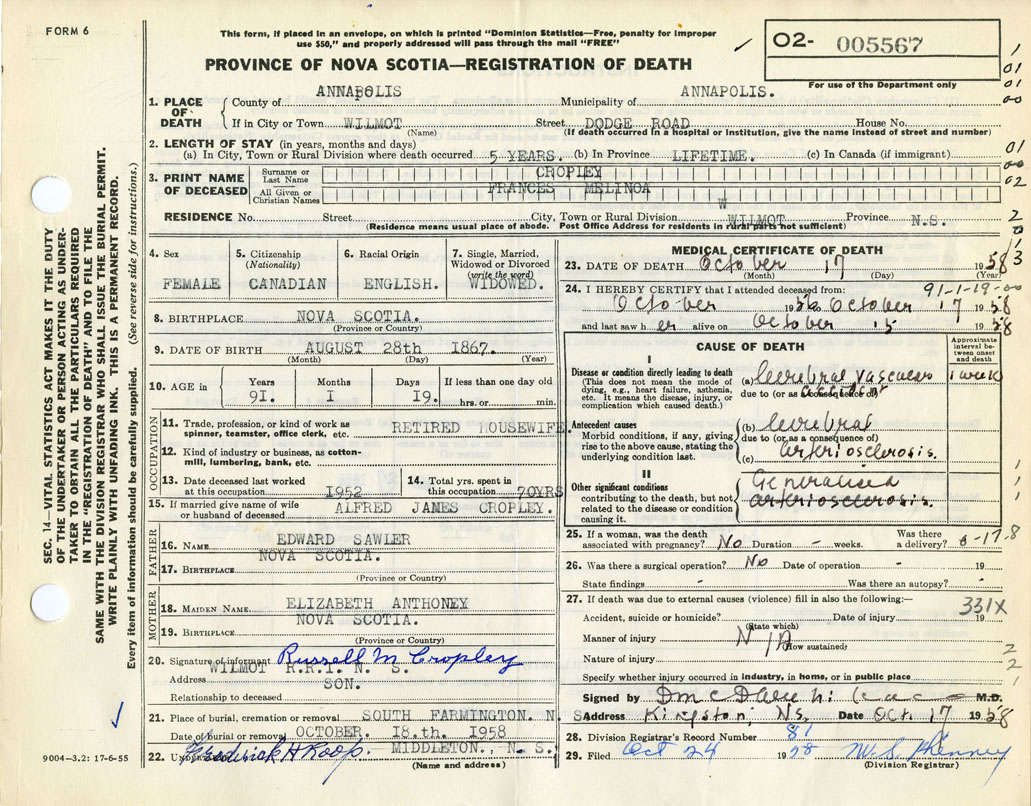 FORM 6
This form, if placed in an envelope, on which is printed "Dominion Statistics—Free, penalty for improper
use $50," and properly addressed will pass through the mail "FREE"
✓
O2- 005567
For use of the Department only
PROVINCE OF NOVA SCOTIA—REGISTRATION OF DEATH
1. PLACE OF DEATH
County of ANNAPOLIS Municipality of ANNAPOLIS.
If in City or Town WILMOT Street DODGE ROAD House No.
(Name) (If death occurred in a hospital or institution, give the name instead of street and number)
2. LENGTH OF STAY (in years, months and days)
(a) In City, Town or Rural Division where death occurred 5 YEARS. (b) In Province LIFETIME. (c) In Canada (if immigrant)
3. PRINT NAME OF DECEASED
Surname or Last Name CROPLEY
All Given or Christian Names FRANCES MELINOA
W
RESIDENCE No. Street City, Town or Rural Division WILMOT Province N.S.
(Residence means usual place of abode. Post Office Address for residents in rural parts not sufficient)
4. Sex FEMALE
5. Citizenship (Nationality) CANADIAN
6. Racial Origin ENGLISH.
7. Single, Married, Widowed or Divorced (write the word) WIDOWED.
8. BIRTHPLACE NOVA SCOTIA.
(Province or Country)
9. DATE OF BIRTH AUGUST 28th 1867.
(Month) (Day) (Year)
10. AGE in Years 91. Months 1 Days 19. If less than one day old hrs. or min.
OCCUPATION
11. Trade, profession, or kind of work as spinner, teamster, office clerk, etc. RETIRED HOUSEWIFE.
12. Kind of industry or business, as cotton-mill, lumbering, bank, etc.
13. Date deceased last worked at this occupation 1952
14. Total yrs. spent in this occupation 70YRS
15. If married give name of wife or husband of deceased ALFRED JAMES CROPLEY.
FATHER
16. NAME EDWARD SAWLER
17. BIRTHPLACE NOVA SCOTIA.
(Province or Country)
MOTHER
18. MAIDEN NAME ELIZABETH ANTHONEY
19. BIRTHPLACE NOVA SCOTIA.
(Province or Country)
20. Signature of informant Russell M Cropley
Address WILMOT R.R.I. N. S.
Relationship to deceased SON.
21. Place of burial, cremation or removal SOUTH FARMINGTON. N. S
Date of burial or removal OCTOBER. 18.th. 1958
22. Frederick H Roop. MIDDLETON, N. S.
(Name and address)
MEDICAL CERTIFICATE OF DEATH
23. DATE OF DEATH October 17 1958
(Month) (Day) (Year)
24. I HEREBY CERTIFY that I attended deceased from: 91-1-19-00
October 1956 October 17 1958
and last saw h er alive on October 15 1958
CAUSE OF DEATH
Approximate interval between onset and death
I
Disease or condition directly leading to death
(This does not mean the mode of dying, e.g., heart failure, asthenia, etc. It means the disease, injury, or complication which caused death.)
(a) Cerebral vascular accident 1 week
due to (or as a consequence of)
Antecedent causes
Morbid conditions, if any, giving rise to the above cause, stating the underlying condition last.
(b) Cerebral
due to (or as a consequence of)
(c) arteriosclerosis.
II
Other significant conditions
contributing to the death, but not related to the disease or condition causing it.
Generalised arteriosclerosis.
25. If a woman, was the death associated with pregnancy? No Duration - weeks. Was there a delivery?
26. Was there a surgical operation? No Date of operation - 19
State findings - Was there an autopsy? -
27. If death was due to external causes (violence) fill in also the following:—
331X
Accident, suicide or homicide? Date of injury 19
(State which)
Manner of injury N/A How sustained
Nature of injury
Specify whether injury occurred in industry, in home, or in public place
Signed by M.D.
Address Kingston, NS. Date Oct. 17 1958
28. Division Registrar's Record Number 81
29. Filed Oct 24 1958 W. S. Phinney
(Division Registrar)
SEC. 14—VITAL STATISTICS ACT MAKES IT THE DUTY
OF THE UNDERTAKER OR PERSON ACTING AS UNDER-
TAKER TO OBTAIN ALL THE PARTICULARS REQUIRED
IN THE "REGISTRATION OF DEATH" AND TO FILE THE
SAME WITH THE DIVISION REGISTRAR WHO SHALL ISSUE THE BURIAL PERMIT.
WRITE PLAINLY WITH UNFADING INK. THIS IS A PERMANENT RECORD.
Every item of information should be carefully supplied. (See reverse side for instructions.)
9004-3.2: 17-6-55
1
01
01
00
01
00
02
2
0
1
3
1
1
1
2
2
1